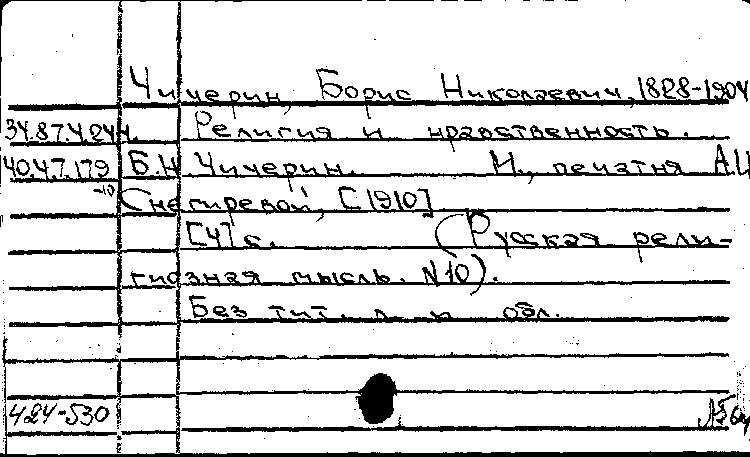 Чичерин, Борис Николаевич, 1828-1904
34.87.4.244. Религия и нравственность.
40.4.7.179 Б.Н. Чичерин. М., печатня А.И.
-10 Снегиревой, [1910]
[4] с. (Русская рели-
гиозная мысль. N10).
Без тит. л. и обл.
424-530